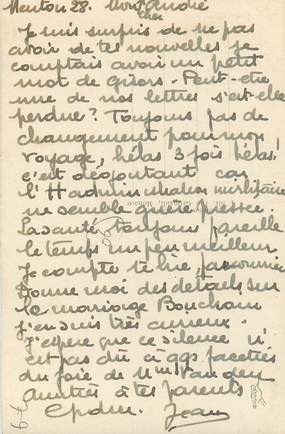 Menton 28. Mon cher André
Je suis surpris de ne pas
avoir de tes nouvelles je
comptais avoir un petit
mot de Gisors - Peut-etre
une de nos lettres s'est-elle
perdue? Toujours pas de
changement pour mon
voyage, hélas 3 fois hélas!
c'est dégoutant car
l'Hadministration militaire
ne semble guère pressée.
La santé toujours pareille
le temps un peu meilleur
Je compte te lire par courrier
Donne moi des détails sur
le mariage
j'en suis très curieux.
J'espère que ce silence n'
est pas dû à qqs facéties
du foie de Mme
Amitiés à tes parents
Jean